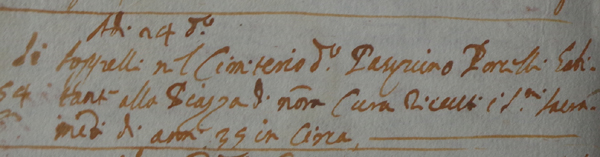 Adi 24 d.º
di soppelli nel Cimiterio d.º Pasquino Porcelli habi-
54 tant.e alla Piazza di nõra Cura Riceuti i S.mi Sacra-
menti di anni 35 in Circa